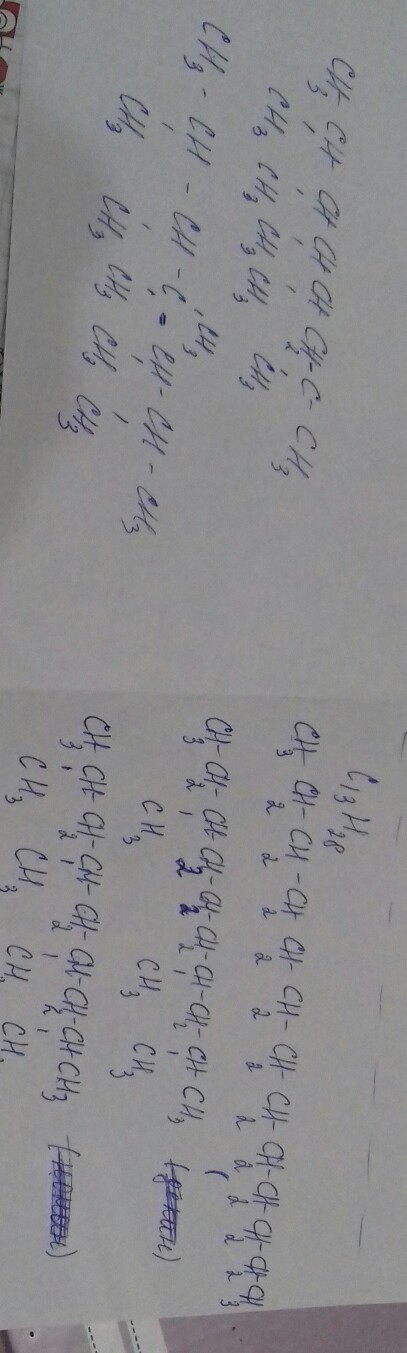 CH3 CH CH CH CH CH2-C-CH3
CH3 CH3 CH3 CH3 CH3
CH3-CH-CH-C=CH-CH-CH3
CH3
CH3 CH3 CH3 CH3 CH3
C13H28
CH3 CH2-CH2-CH2 CH2-CH2-CH2 CH2 CH2-CH2-CH2-CH2-CH3
CH3-CH2-CH-CH2-CH2-CH2-CH-CH2-CH-CH3
CH3 CH3 CH3
CH3-CH-CH2-CH-CH2-CH-CH2-CH-CH3
CH3 CH3 CH3 CH3